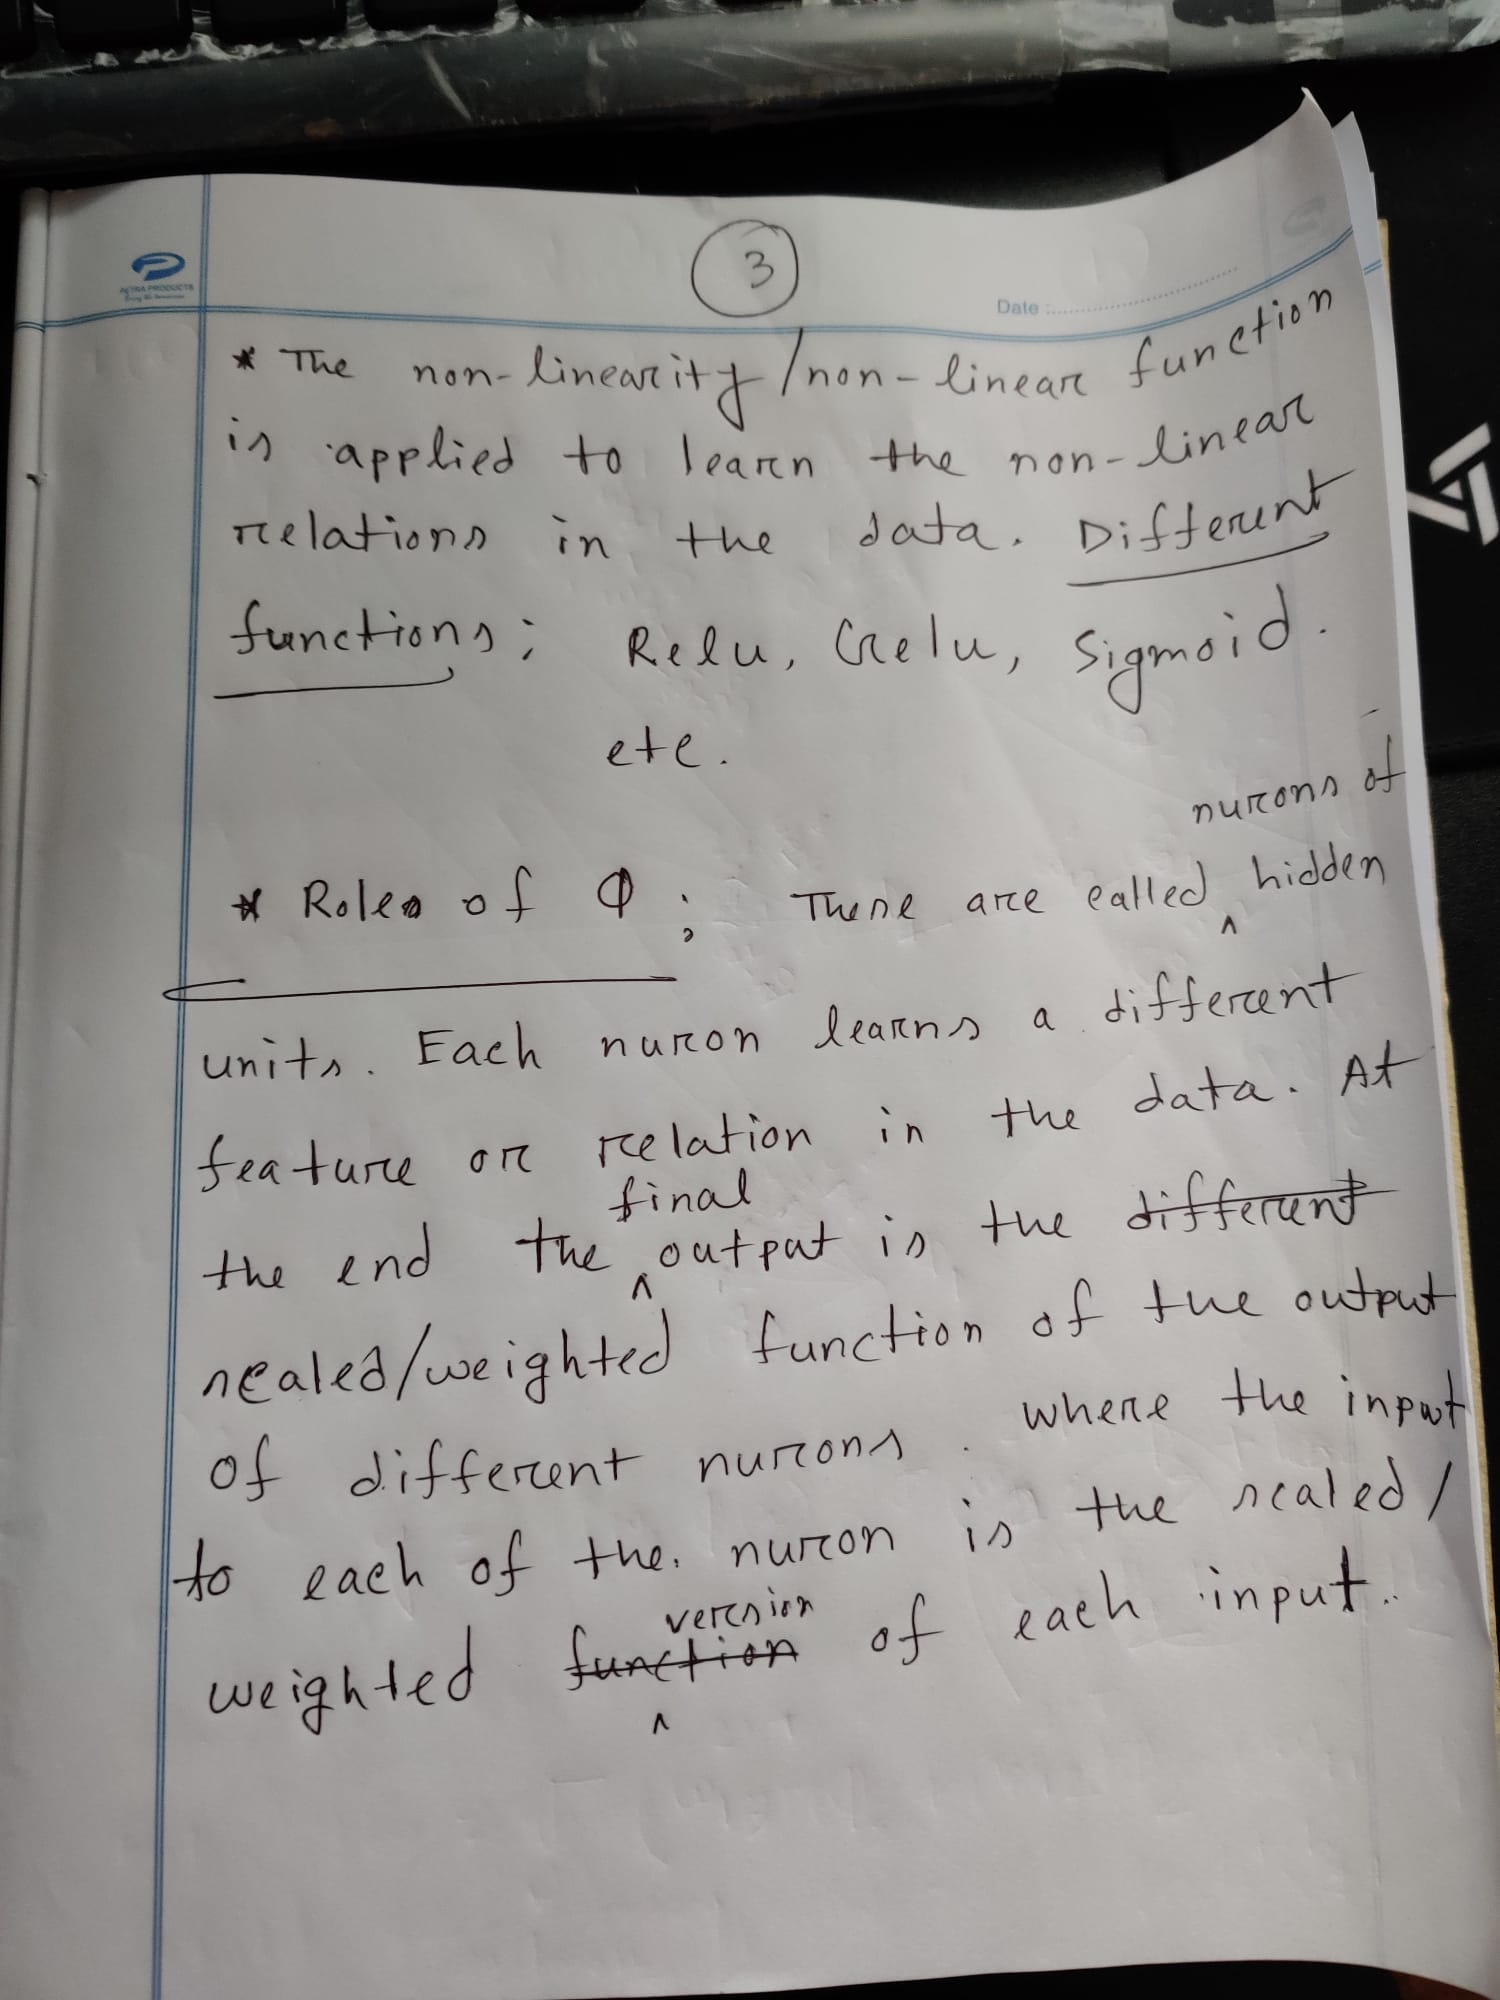 3
Date :
* The non-linearity/non-linear function
is applied to learn the non-linear
relations in the data. Different
functions; Relu, Gelu, Sigmoid.
etc.
* Roles of Φ; These are called nurons of hidden
units. Each nuron learns a different
feature or relation in the data. At
the end the final output is the different
scaled/weighted function of the output
of different nurons. where the input
to each of the nuron is the scaled/
weighted function version of each input.